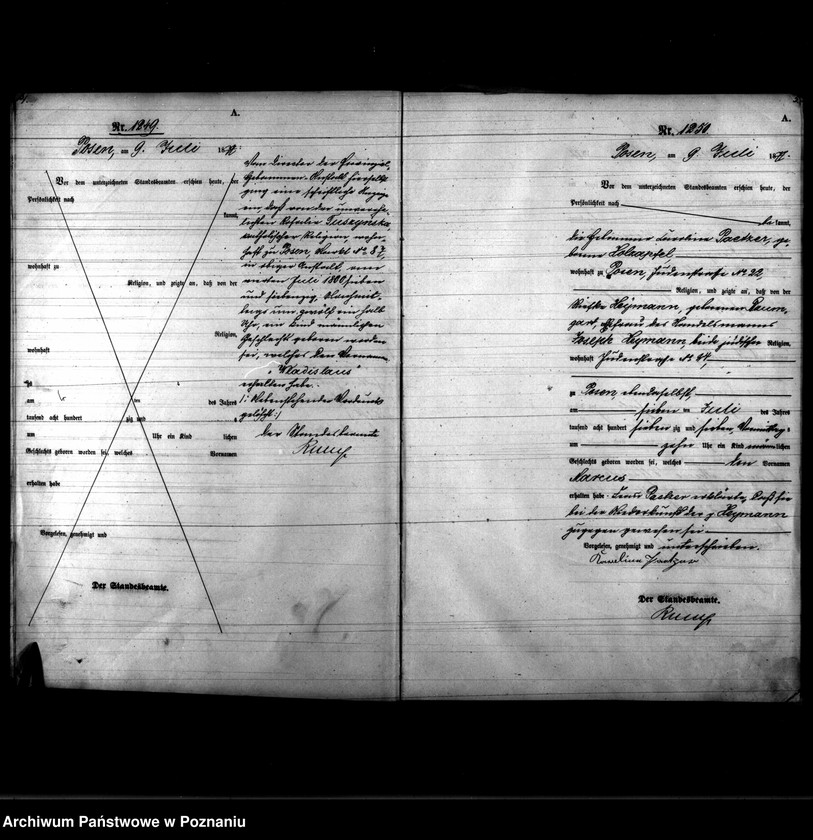 A.
Nr. 1249.
Posen, am 9. Juli 1877.
Vor dem unterzeichneten Standesbeamten erschien heute, der
Persönlichkeit nach
kannt,
wohnhaft zu
Religion, und zeigte an, daß von der
Religion,
wohnhaft
zu
am ten des Jahres
tausend acht hundert zig und
um Uhr ein Kind lichen
Geschlechts geboren worden sei, welches Vornamen
erhalten habe
Vorgelesen, genehmigt und
Der Standesbeamte.
Vom Director der Provinzial-
Hebammen-Anstalt hierselbst
ging eine schriftliche Anzeige
ein daß von der unverehe-
lichten Rosalie Tuszynska
katholischer Religion, wohn-
haft zu Posen, Markt No 87,
in obiger Anstalt, am
Juli 1800 sieben
und siebenzig, Nachmit-
tags um zwölf ein halb
Uhr, ein Kind männlichen
Geschlecht geboren worden
sei, welches den Vornamen
"Wladislaus"
erhalten habe.
/: Nebenstehender Vordruck
gelöscht :/
Der Standesbeamte
A.
Nr. 1250.
Posen, am 9. Juli 1877.
Vor dem unterzeichneten Standesbeamten erschien heute, der
Persönlichkeit nach
bekannt,
die Hebamme Karoline Paetzer, ge-
borene Holzapfel,
wohnhaft zu Posen, Judenstraße No 22,
Religion, und zeigte an, daß von der
Heymann, geborenen Baum-
gart, Ehefrau des Handelsmannes
Joseph Heymann, beide jüdischer Religion,
wohnhaft Judenstraße No
zu Posen
am sieben ten Juli des Jahres
tausend acht hundert sieben zig und sieben, Vormittags
um zehn Uhr ein Kind männlichen
Geschlechts geboren worden sei, welches den Vornamen
Marcus
erhalten habe. Paetzer erklärte, daß sie
bei der Niederkunft der p. Heymann
zugegen gewesen sei
Vorgelesen, genehmigt und unterschrieben.
Karoline Paetzer
Der Standesbeamte.
Archiwum Państwowe w Poznaniu